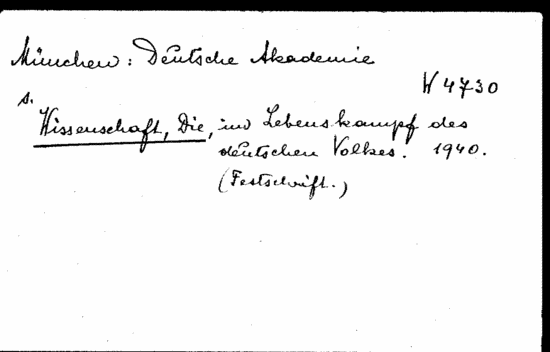 München: Deutsche Akademie
W 4730
s.
Wissenschaft, Die, im Lebenskampf des
deutschen Volkes. 1940.
(Festschrift.)